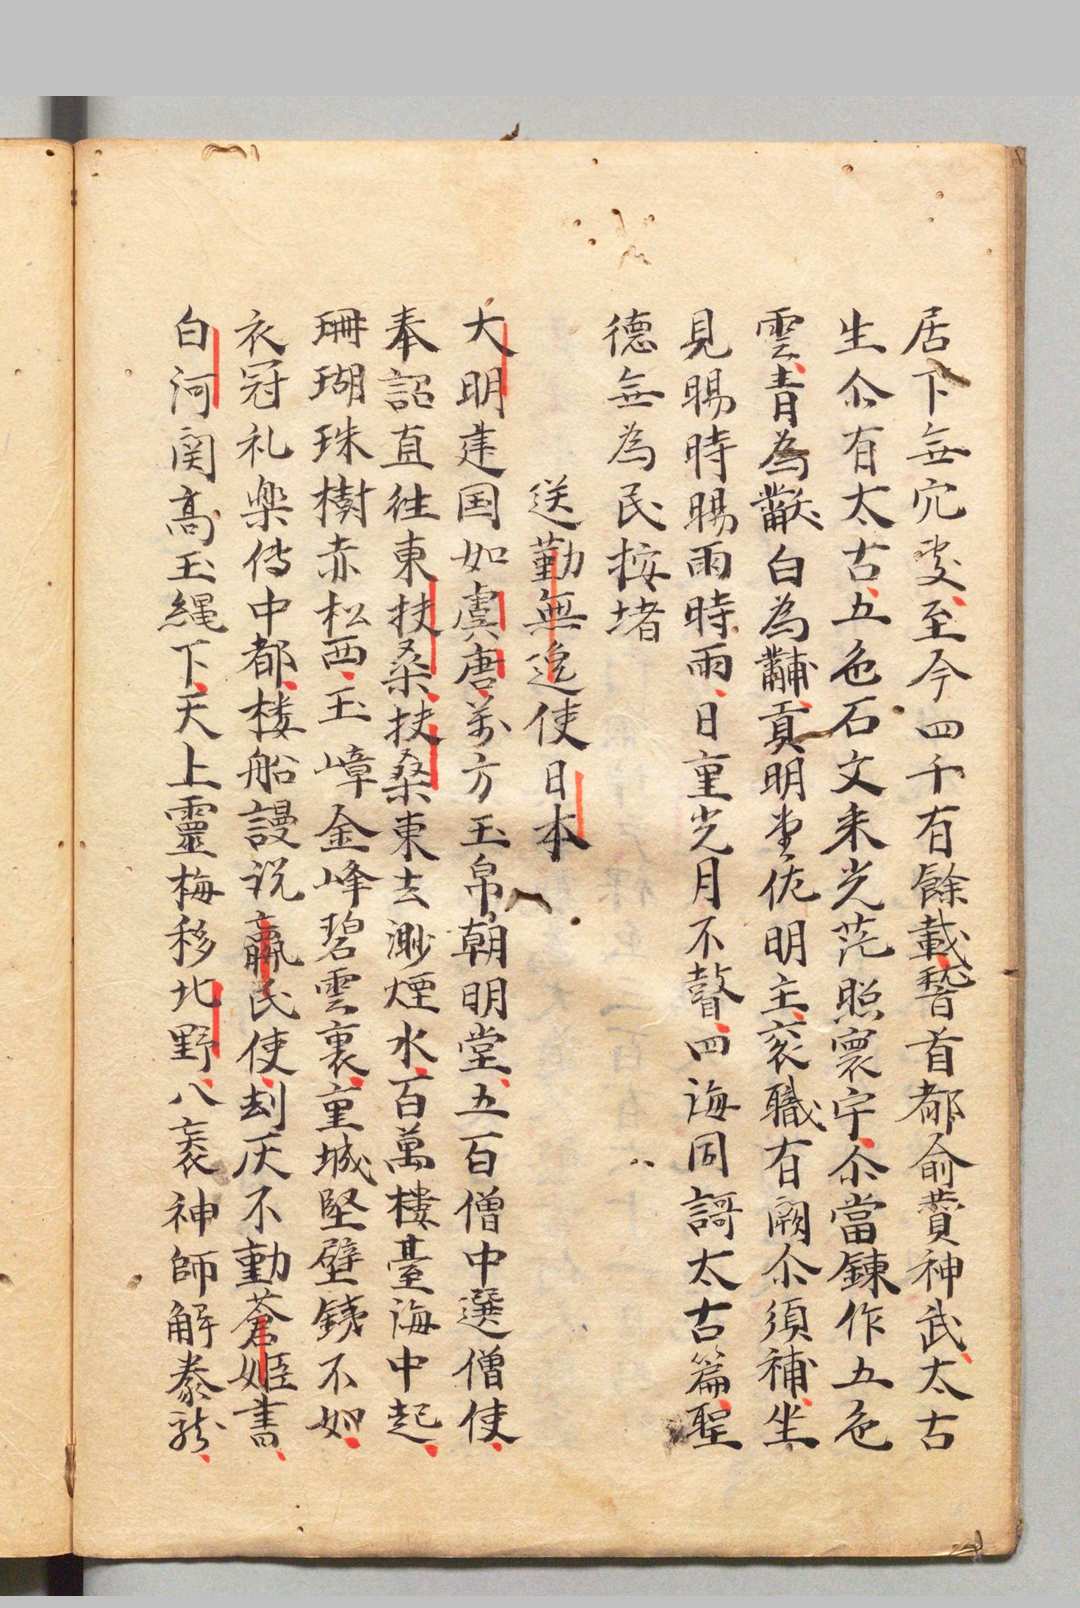 居下無穴処至今四千有餘載稽首都俞賛神武太古
生尒有太古五色石文来光茫照寰宇尒當錬作五色
雲青為黻白為黼貢明堂佐明主衮職有闕尒須補坐
見暘時暘雨時雨日重光月不瞽四海同謌太古篇聖
德無為民按堵
送勤無逸使日本
大明建国如虞唐万方玉帛朝明堂五百僧中選僧使
奉詔直往東扶桑扶桑東去渺煙水百萬樓臺海中起
珊瑚珠樹赤松西玉嶂金峰碧雲裏重城堅壁銕不如
衣冠礼楽传中都楼船謾说嬴氏使刼灰不動蒼姬書
白河関高玉縄下天上靈梅移北野八袠神師解豢龙